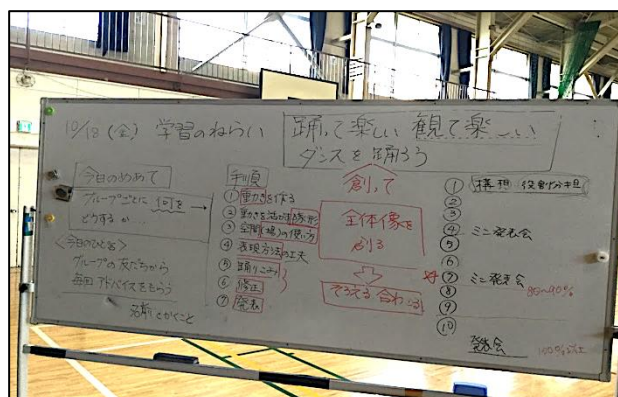 10/18 (金) 学習のねらい
踊って楽しい 観て楽しい
ダンスを踊ろう
今日のめあて
グループごとに 何を →
どうするか…
<今日のひと名>
グループの友だちから
毎回 アドバイスをもらう
名前 とかくこと
手順
① 動きを作る
② 動きを活かす隊形
③ 空間(場)の使い方
④ 表現方法の工夫
⑤ 踊りこみ
⑥ 修正
⑦ 発表
創って
全体像を
創る
そろえる 合わせる
① 構想 役割分担
②
③
④ ミニ発表会
⑤
⑦ ミニ発表会
⑧ 80~90%
⑨
⑩
発表会 100%以上